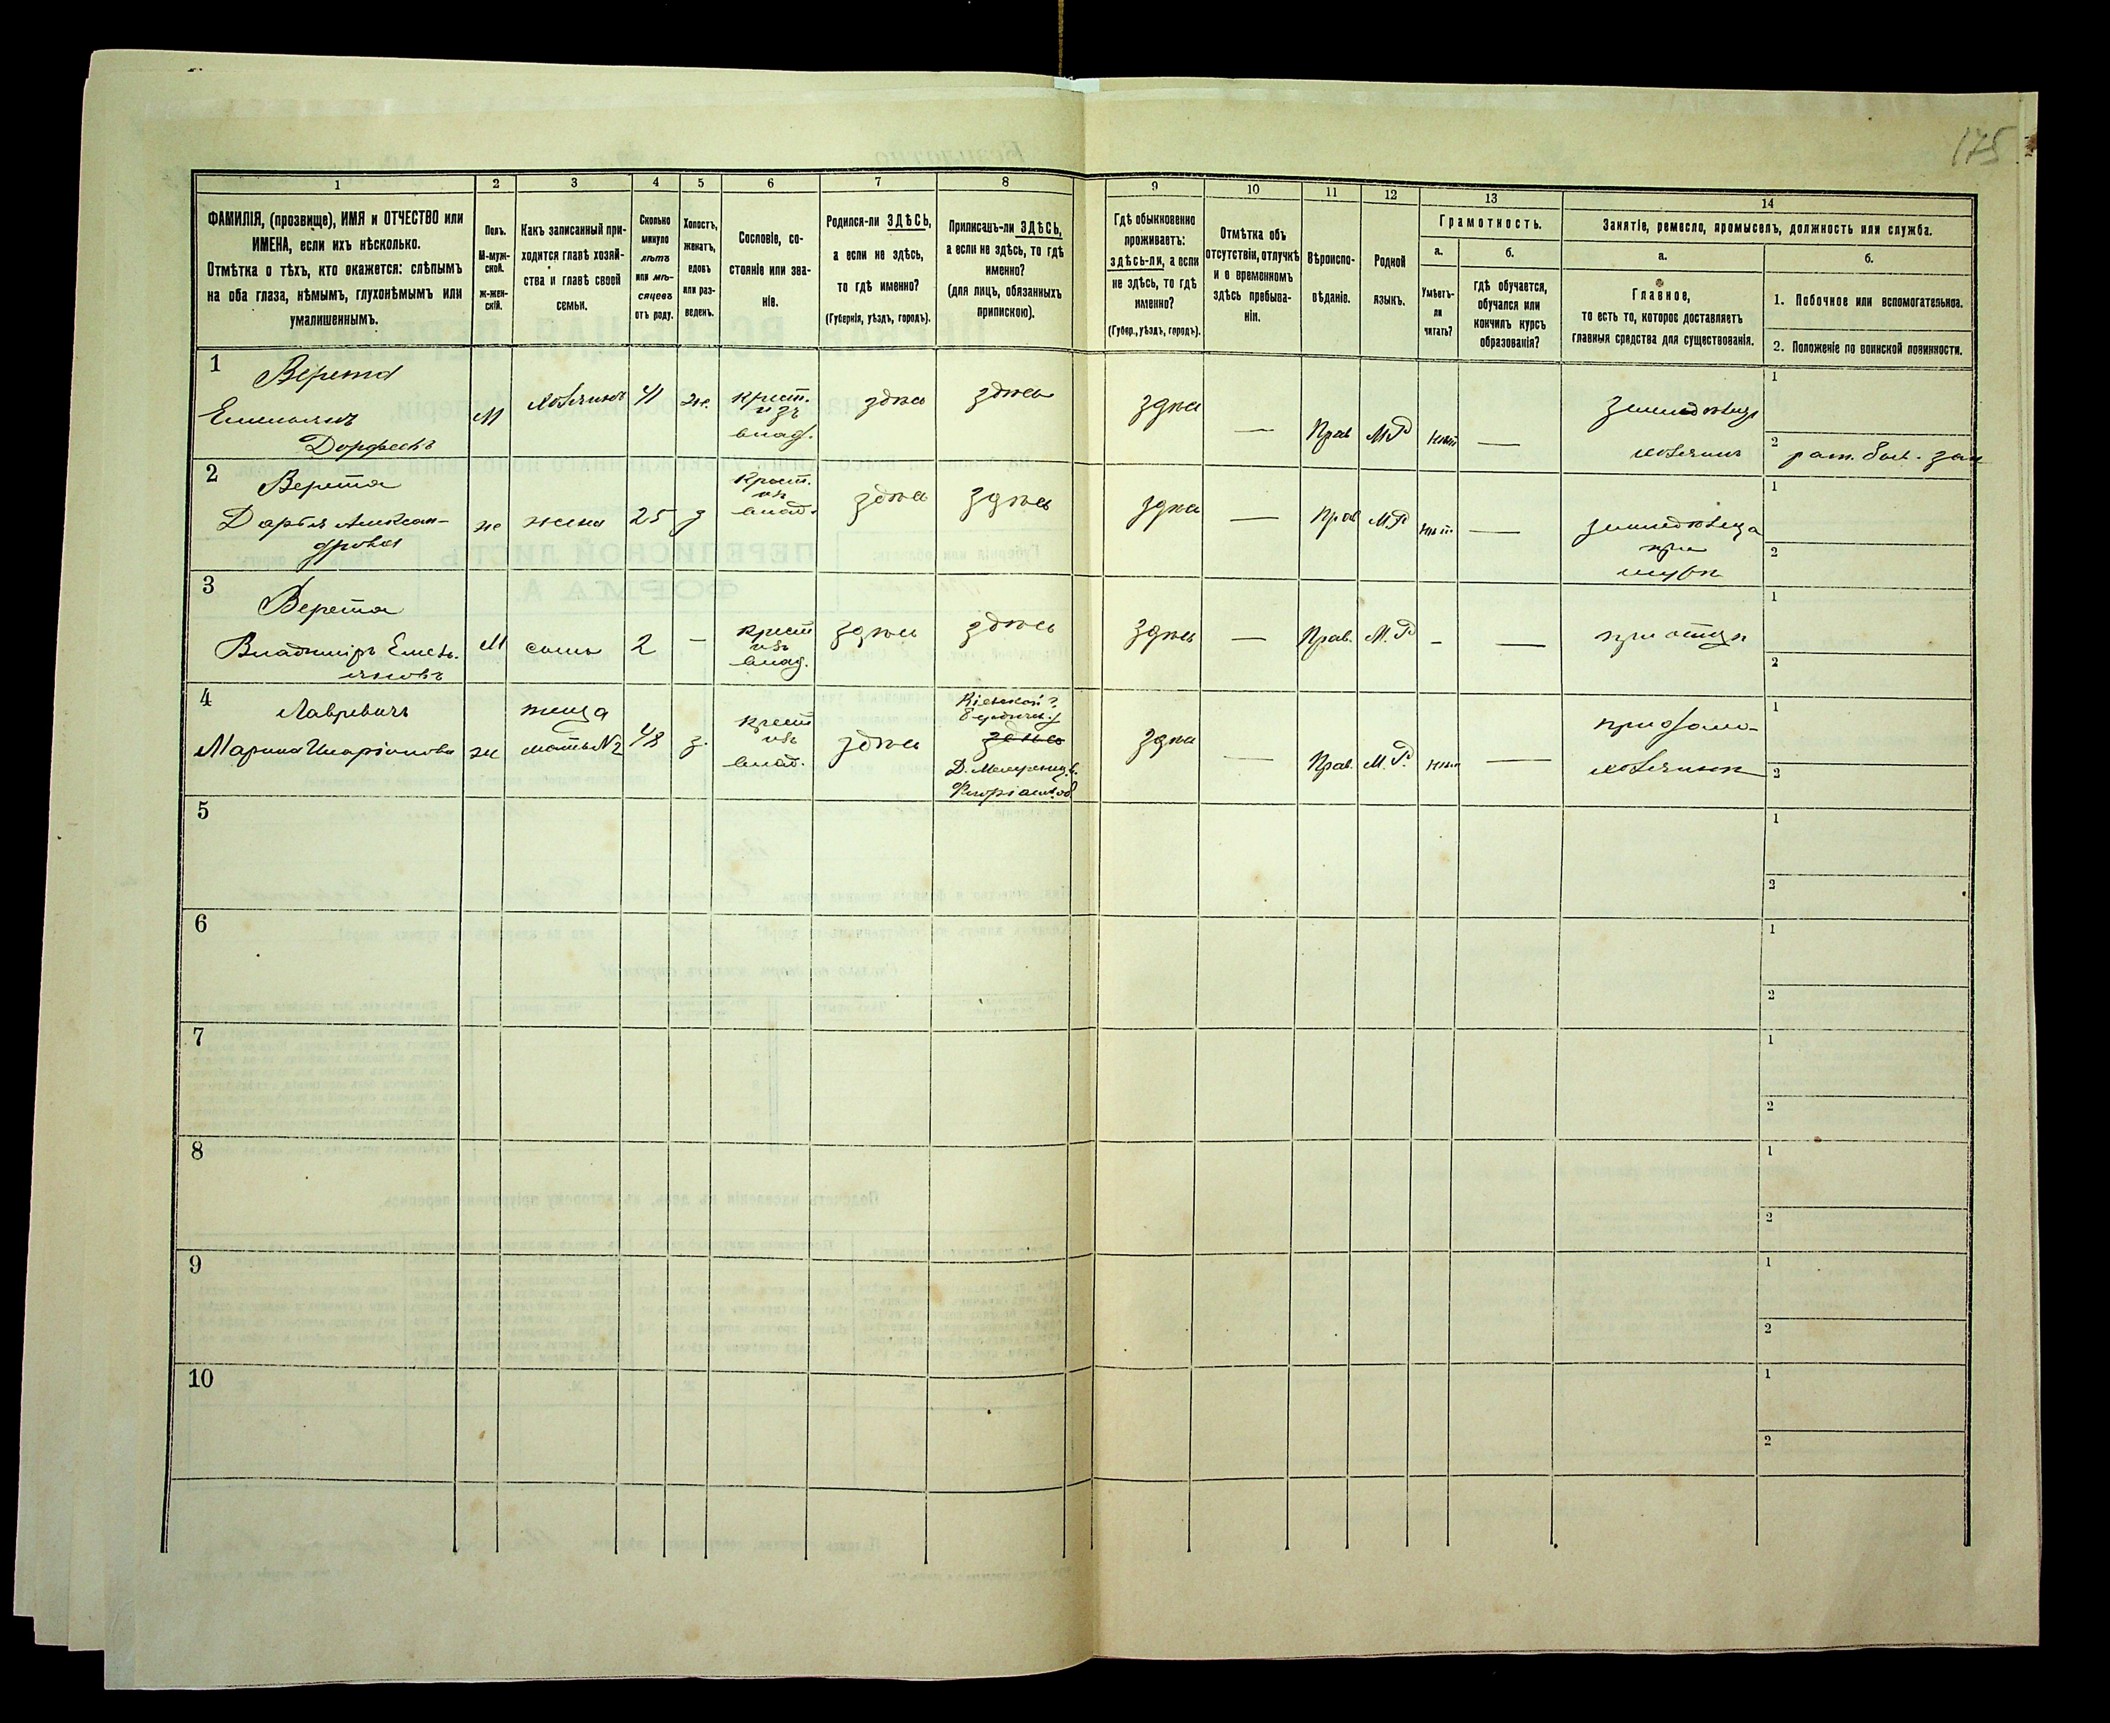 175
1 2 3 4 5 6 7 8 9 10 11 12 13 14
ФАМИЛІЯ, (прозвище), ИМЯ и ОТЧЕСТВО или
ИМЕНА, если ихъ нѣсколько.
Отмѣтка о тѣхъ, кто окажется: слѣпымъ
на оба глаза, нѣмымъ, глухонѣмымъ или
умалишеннымъ.
Полъ.
М-муж-
ской.
ж-жен-
скій.
Какъ записанный при-
ходится главѣ хозяй-
ства и главѣ своей
семьи.
Сколько
минуло
лѣтъ
или мѣ-
сяцевъ
отъ роду.
Холостъ,
женатъ,
вдовъ
или раз-
веденъ.
Сословіе, со-
стояніе или зва-
ніе.
Родился-ли ЗДѢСЬ,
а если не здѣсь,
то гдѣ именно?
(Губернія, уѣздъ, городъ).
Приписанъ-ли ЗДѢСЬ,
а если не здѣсь, то гдѣ
именно?
(для лицъ, обязанныхъ
припискою).
Гдѣ обыкновенно
проживаетъ:
здѣсь-ли, а если
не здѣсь, то гдѣ
именно?
(Губер., уѣздъ, городъ).
Отмѣтка объ
отсутствіи, отлучкѣ
и о временномъ
здѣсь пребыва-
ніи.
Вѣроиспо-
вѣданіе.
Родной
языкъ.
Грамотность.
а.
Умѣетъ-
ли
читать?
б.
гдѣ обучается,
обучался или
кончилъ курсъ
образованія?
Занятіе, ремесло, промыселъ, должность или служба.
а.
Главное,
то есть то, которое доставляетъ
главныя средства для существованія.
б.
1. Побочное или вспомогательное.
2. Положеніе по воинской повинности.
1
Верета
Емельянъ
Дорофеевъ
М
хозяинъ
41
же.
крест.
изъ
влад.
здѣсь
здѣсь
здѣсь
—
Прав
М.Р
нѣт
—
земледѣлецъ
хозяинъ
1
2
2
Верета
Дарья Алексан-
дрова
же
жена
25
з
крест.
изъ
влад.
здѣсь
здѣсь
здѣсь
—
Прав
М.Р
нѣт
—
земледѣлица
при
мужѣ
1
2
3
Верета
Владиміръ Емель-
яновъ
М
сынъ
2
—
крест
изъ
влад.
здѣсь
здѣсь
здѣсь
—
Прав.
М. Р
—
—
при отцѣ
1
2
4
Лавревичъ
Марина Иларіонова
же
теща
мать №2
48
з.
крест
изъ
влад.
здѣсь
Кіевской г.
здѣсь
здѣсь
—
Прав.
М. Р.
нѣт
—
при домо-
хозяинѣ
1
2
5
1
2
6
1
2
7
1
2
8
1
2
9
1
2
10
1
2